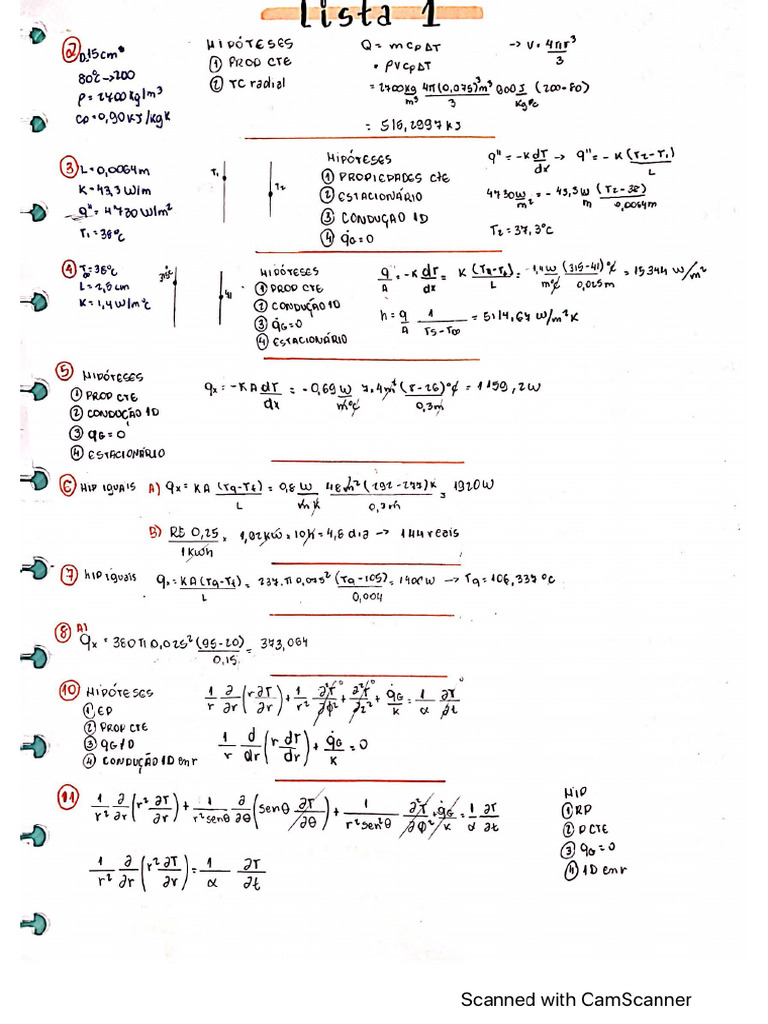 Lista 1
② 0.15cm*
80°c→200
ρ = 2700 kg/m³
cp=0,90 KJ/kgK
HIPÓTESES
① PROP CTE
② TC radial
Q = mCpΔT → V = 4πr³/3
• ρVCpΔT
= 2700kg/m³ 4π(0,075)³m³/3 900J/kg°c (200-80)
= 516,2997KJ
③ L=0,0064m
K=43,3W/m
q"= 4730W/m²
T₁=38°c
T₁ T₂
HIPÓTESES
① PROPIEDADES CTE
② ESTACIONÁRIO
③ CONDUÇÃO 1D
④ q̇G=0
q" = -K dT/dx → q" = -K (T₂-T₁)/L
4730 W/m² = -43,3W/m (T₂-38)/0,0064m
T₂ = 37,3°c
④ T∞=38°c
L=2,5cm
K=1,4W/m°c
315°c 41
HIPÓTESES
① PROP CTE
② CONDUÇÃO 1D
③ q̇G=0
④ ESTACIONÁRIO
q/A = -K dT/dx = K (T₂-T₁)/L = -1,4W/m°c (315-41)°c/0,025m = 15344 W/m²
h = q/A 1/(Ts-T∞) = 5114,67 W/m²K
⑤ HIPÓTESES
① PROP CTE
② CONDUÇÃO 1D
③ qG=0
④ ESTACIONÁRIO
qx = -KA dT/dx = -0,69W/m°c 7.4m² (8-26)°c/0,3m = 1159,2W
⑥ HIP IGUAIS A) qx = KA (Tq-Tf)/L = 0,8W/mK 48m²(292-277)K/0,3m = 1920W
B) R$ 0,25/1Kwh × 1,92KW × 10h = 4,8 dia → 144 reais
⑦ hIP iguais qx = KA(Tq-Tf)/L = 237.π0,075² (Tq-105)/0,004 = 1400W → Tq = 106,337°c
⑧ A) qx = 380π0,025²(95-20)/0,15 = 373,064
⑩ HIPÓTESES
① EP
② PROP CTE
③ qG≠0
④ CONDUÇÃO 1D em r
1/r ∂/∂r (r∂T/∂r) + 1/r² ∂²T/∂ϕ² ⁰ + ∂²T/∂z² ⁰ + q̇G/K = 1/α ∂T/∂t ⁰
1/r d/dr (r dT/dr) + q̇G/K = 0
⑪ 1/r² ∂/∂r (r² ∂T/∂r) + 1/r²senθ ∂/∂θ (senθ ∂T/∂θ) + 1/r²sen²θ ∂²T/∂ϕ² + q̇G/K = 1/α ∂T/∂t
1/r² ∂/∂r (r² ∂T/∂r) = 1/α ∂T/∂t
HIP
① RP
② PCTE
③ qG=0
④ 1D em r
Scanned with CamScanner